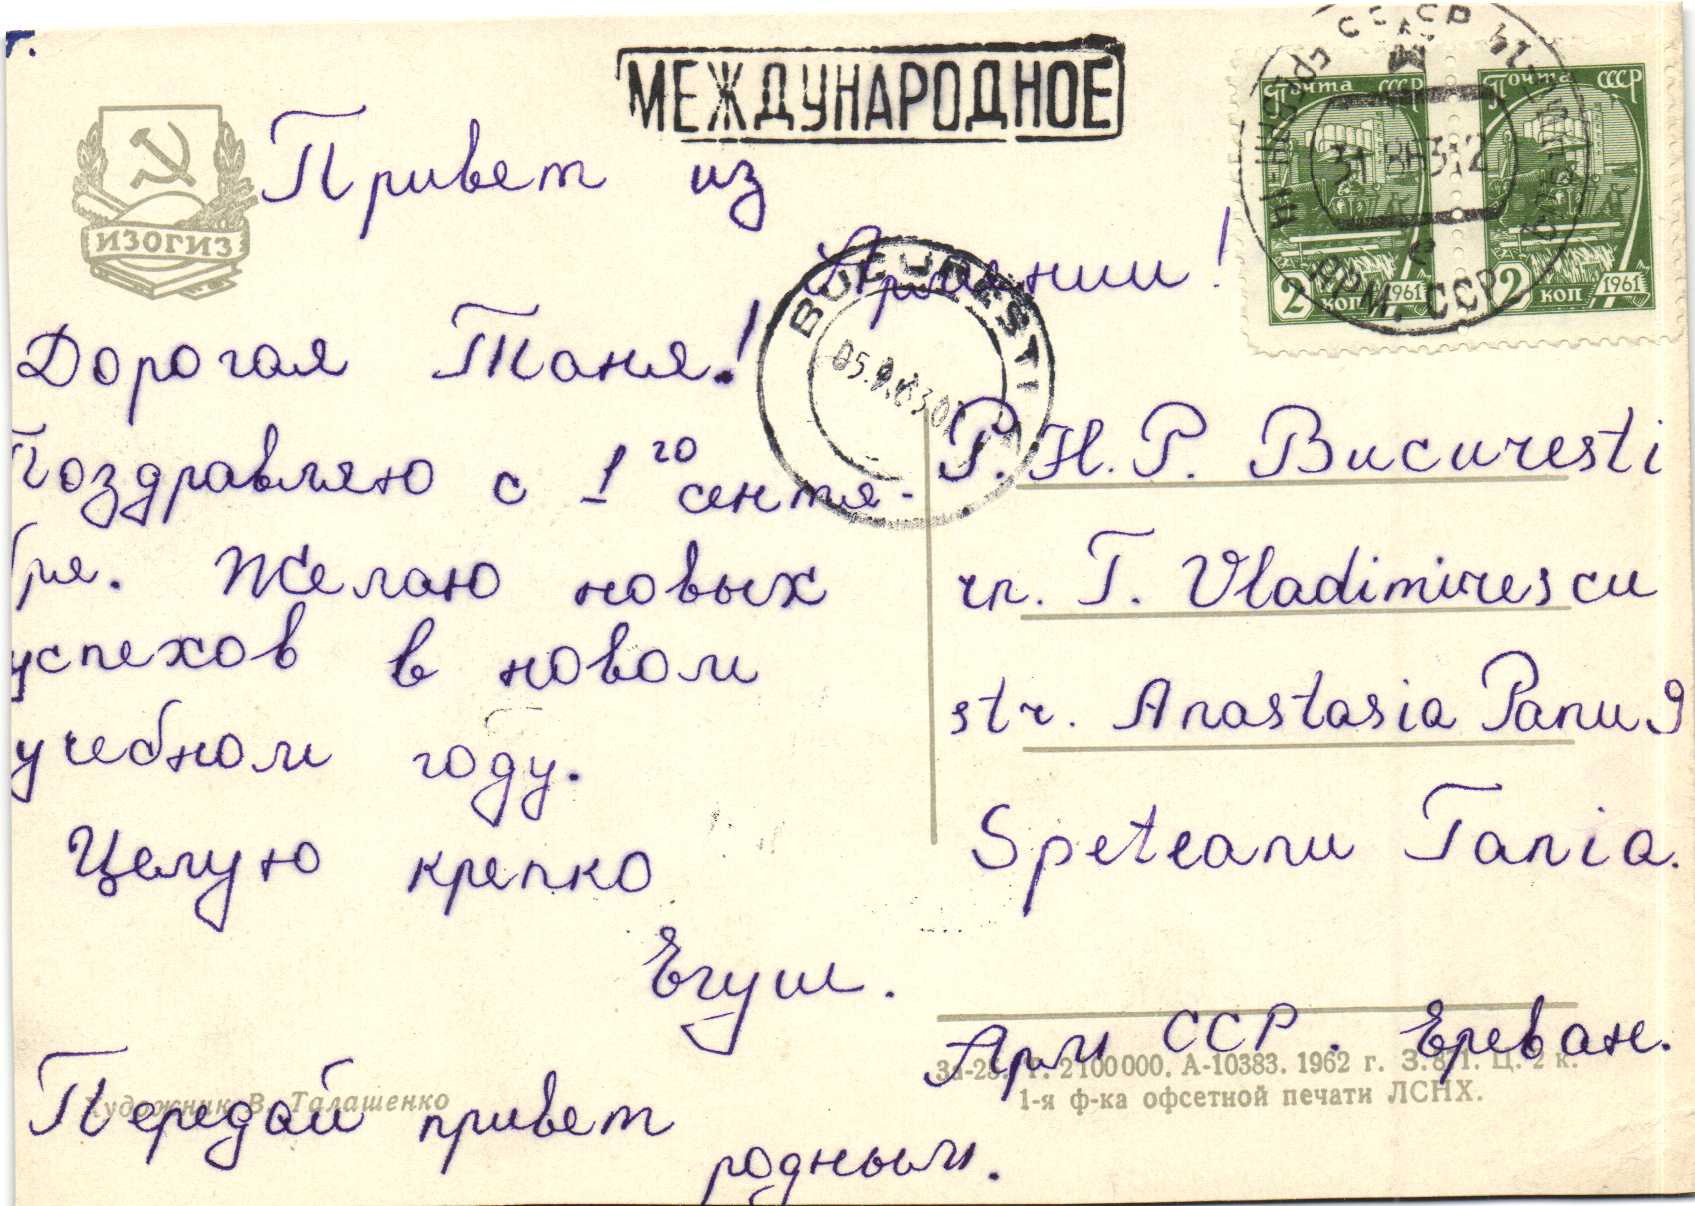 МЕЖДУНАРОДНОЕ
ИЗОГИЗ
Привет из
Армении!
Дорогая Таня!
Поздравляю с 1го сентя-
бря. Желаю новых
успехов в новом
учебном году.
Целую крепко
Егуш.
Передай привет
родным.
Художник В. Талашенко
ПОЧТА СССР
2 КОП 1961
ПОЧТА СССР
2 КОП 1961
АРМ. ССР
BUCURESTI
P. H. P. Bucuresti
rn. T. Vladimirescu
str. Anastasia Panu 9
Speteanu Tania.
Арм ССР. Ереван.
2100000. А-10383. 1962 г. З. 871. Ц. 2 к.
1-я ф-ка офсетной печати ЛСНХ.